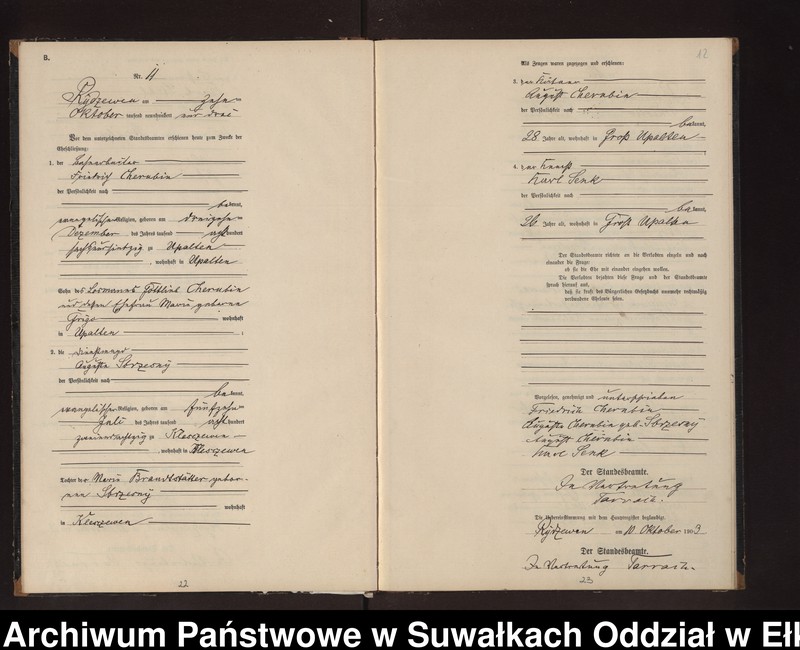 B.
Nr. 11
Rydzewen am zehn
Oktober tausend neunhundert und drei
Vor dem unterzeichneten Standesbeamten erschienen heute zum Zwecke der
Eheschließung:
1. der
Friedrich Cherubin
der Persönlichkeit nach
bekannt,
evangelischer Religion, geboren am dreizehn
Dezember des Jahres tausend acht hundert
zu Upalten
, wohnhaft in Upalten
Sohn des Losmanns Gottlieb Cherubin
und dessen Ehefrau Marie geborene
wohnhaft
in Upalten
2. die Dienstmagd
Auguste Skrzesny
der Persönlichkeit nach
bekannt,
evangelischer Religion, geboren am fünfzehn
Juli des Jahres tausend acht hundert
zweiundachtzig zu Kleszewen
, wohnhaft in Kleszewen
Tochter der Marie Brandtstäter gebor-
nen Skrzesny
wohnhaft
in Kleszewen
22
12
Als Zeugen waren zugezogen und erschienen:
3. der
August Cherubin
der Persönlichkeit nach
bekannt,
28 Jahre alt, wohnhaft in Groß Upalten
4. der Knecht
Karl Senk
der Persönlichkeit nach
bekannt,
26 Jahre alt, wohnhaft in Groß Upalten
Der Standesbeamte richtete an die Verlobten einzeln und nach
einander die Frage:
ob sie die Ehe mit einander eingehen wollen.
Die Verlobten bejahten diese Frage und der Standesbeamte
sprach hierauf aus,
daß sie kraft des Bürgerlichen Gesetzbuchs nunmehr rechtmäßig
verbundene Eheleute seien.
Vorgelesen, genehmigt und unterschrieben
Friedrich Cherubin
Auguste Cherubin geb. Skrzesny
August Cherubin
Karl Senk
Der Standesbeamte.
In Vertretung
Tarrach.
Die Übereinstimmung mit dem Hauptregister beglaubigt
Rydzewen am 10. Oktober 1903
Der Standesbeamte.
In Vertretung Tarrach.
23
Archiwum Państwowe w Suwałkach Oddział w Ełk